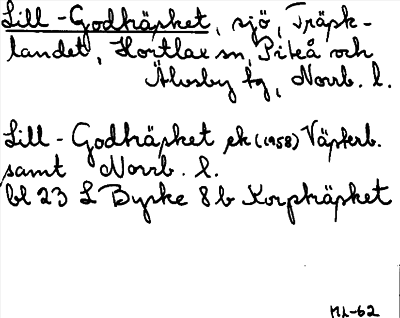 Lill-Godträsket, sjö, Träsk-
landet, Hortlax sn, Piteå och
Älvsby tg, Norrb. l.
Lill-Godträsket ek (1958) Västerb.
samt Norrb. l.
bl 23 L Byske 8b Korpträsket
ML-62